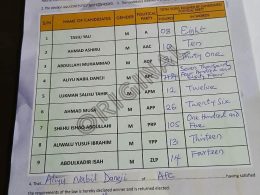 S/N NAME OF CANDIDATES GENDER POLITICAL PARTY IN WORDS
1 TASIU TALI M A 08 Eight
2 AHMAD ASHIRU M AAC 10 Ten
3 ABDULLAHI MUHAMMAD M ADC 31 Thirty One
4 ALIYU NABIL DANEJI M APC
5 LUKMAN SALIHU TAHIR M APM 12 Twelve
6 AHMAD MUSA M APP 26 Twenty Six
7 SHEHU ISHAQ ABDULLAHI M PRP 105 One Hundred and Five
8 AUWALU YUSUF IBRAHIM M YPP 13 Thirteen
9 ABDULKADIR ISAH M ZLP 14 Fourteen
ORIGINAL
4. That Aliyu Nabil Daneji of APC having satisfied
the requirements of the law is hereby declared winner and is returned elected.